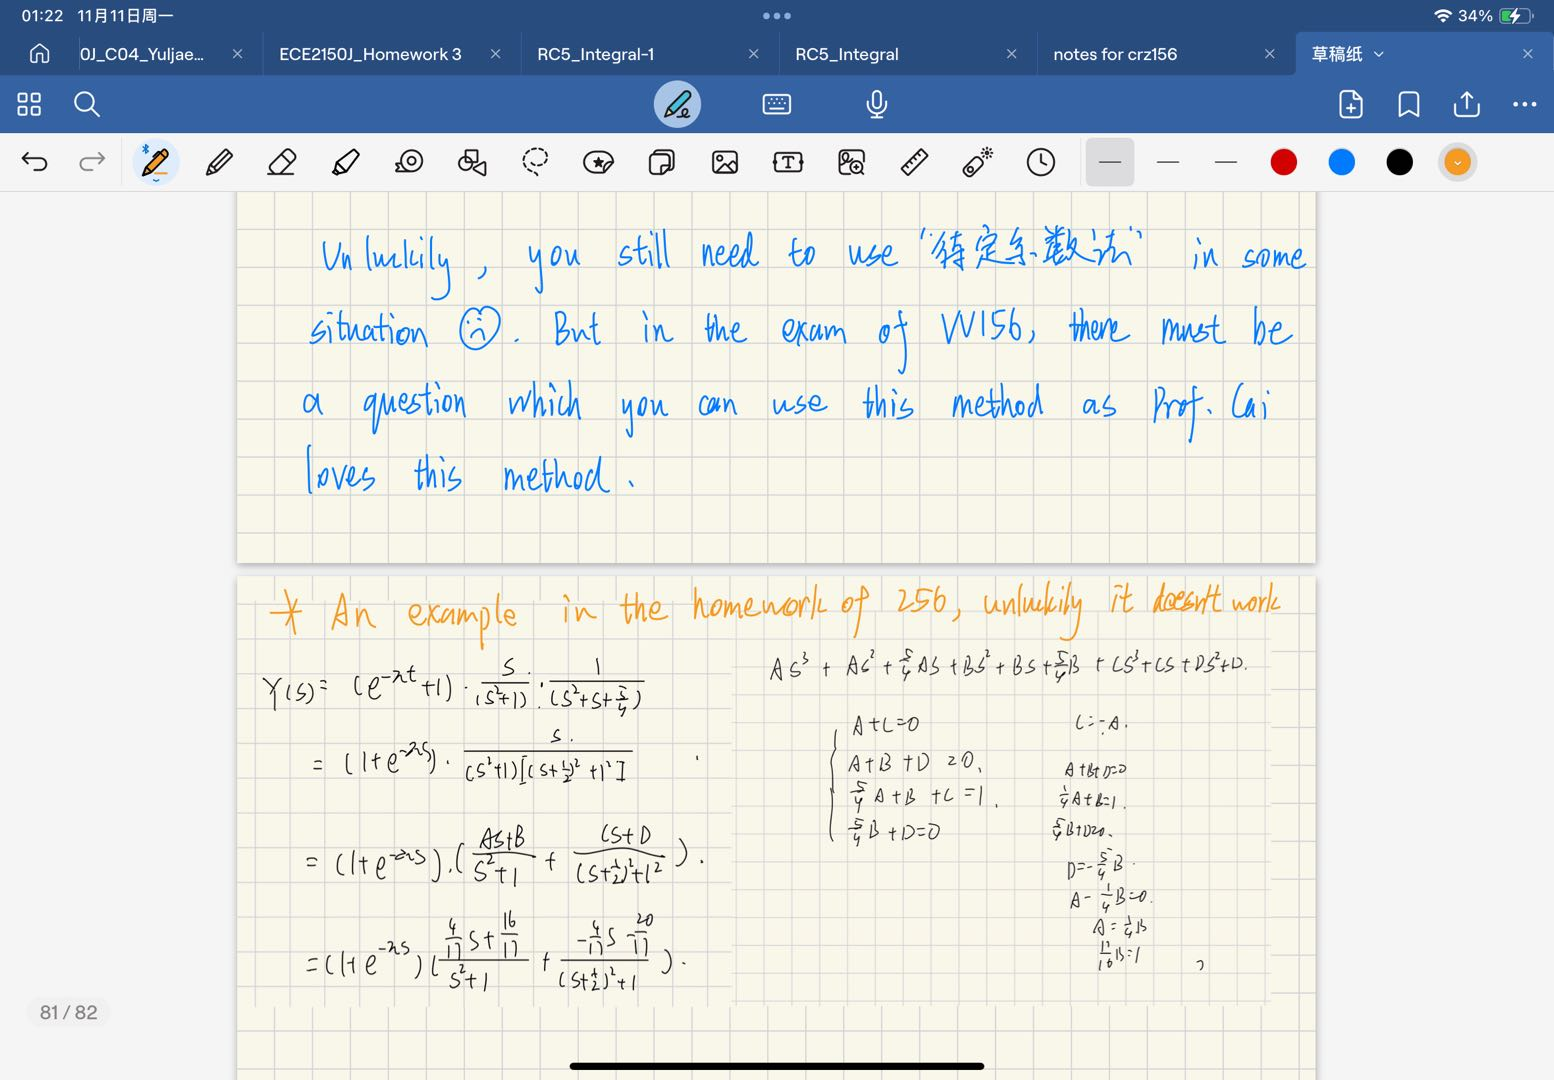 01:22 11月11日周一
34%
0J_C04_Yuljae...
ECE2150J_Homework 3
RC5_Integral-1
RC5_Integral
notes for crz156
草稿纸
Unluckily, you still need to use "待定系数法" in some
situation ☹. But in the exam of VV156, there must be
a question which you can use this method as Prof. Cai
loves this method.
* An example in the homework of 256, unluckily it doesn't work
Y(s) = (e^{-πt}+1) · \frac{s}{(s²+1)} · \frac{1}{(s²+s+\frac{5}{4})}
= (1+e^{-πs}) · \frac{s}{(s²+1)[(s+\frac{1}{2})²+1²]}
= (1+e^{-πs}) · (\frac{As+B}{s²+1} + \frac{Cs+D}{(s+\frac{1}{2})²+1²}).
= (1+e^{-πs}) (\frac{\frac{4}{17}s+\frac{16}{17}}{s²+1} + \frac{-\frac{4}{17}s-\frac{20}{17}}{(s+\frac{1}{2})²+1}).
As³ + As² + \frac{5}{4}As + Bs² + Bs + \frac{5}{4}B + Cs³ + Cs + Ds² + D.
A+C=0
A+B+D=0.
\frac{5}{4}A+B+C=1.
\frac{5}{4}B+D=0
C=-A.
A+B+D=0
\frac{1}{4}A+B=1.
\frac{5}{4}B+D=0.
D=-\frac{5}{4}B.
A-\frac{1}{4}B=0.
A=\frac{1}{4}B
\frac{17}{16}B=1
81 / 82